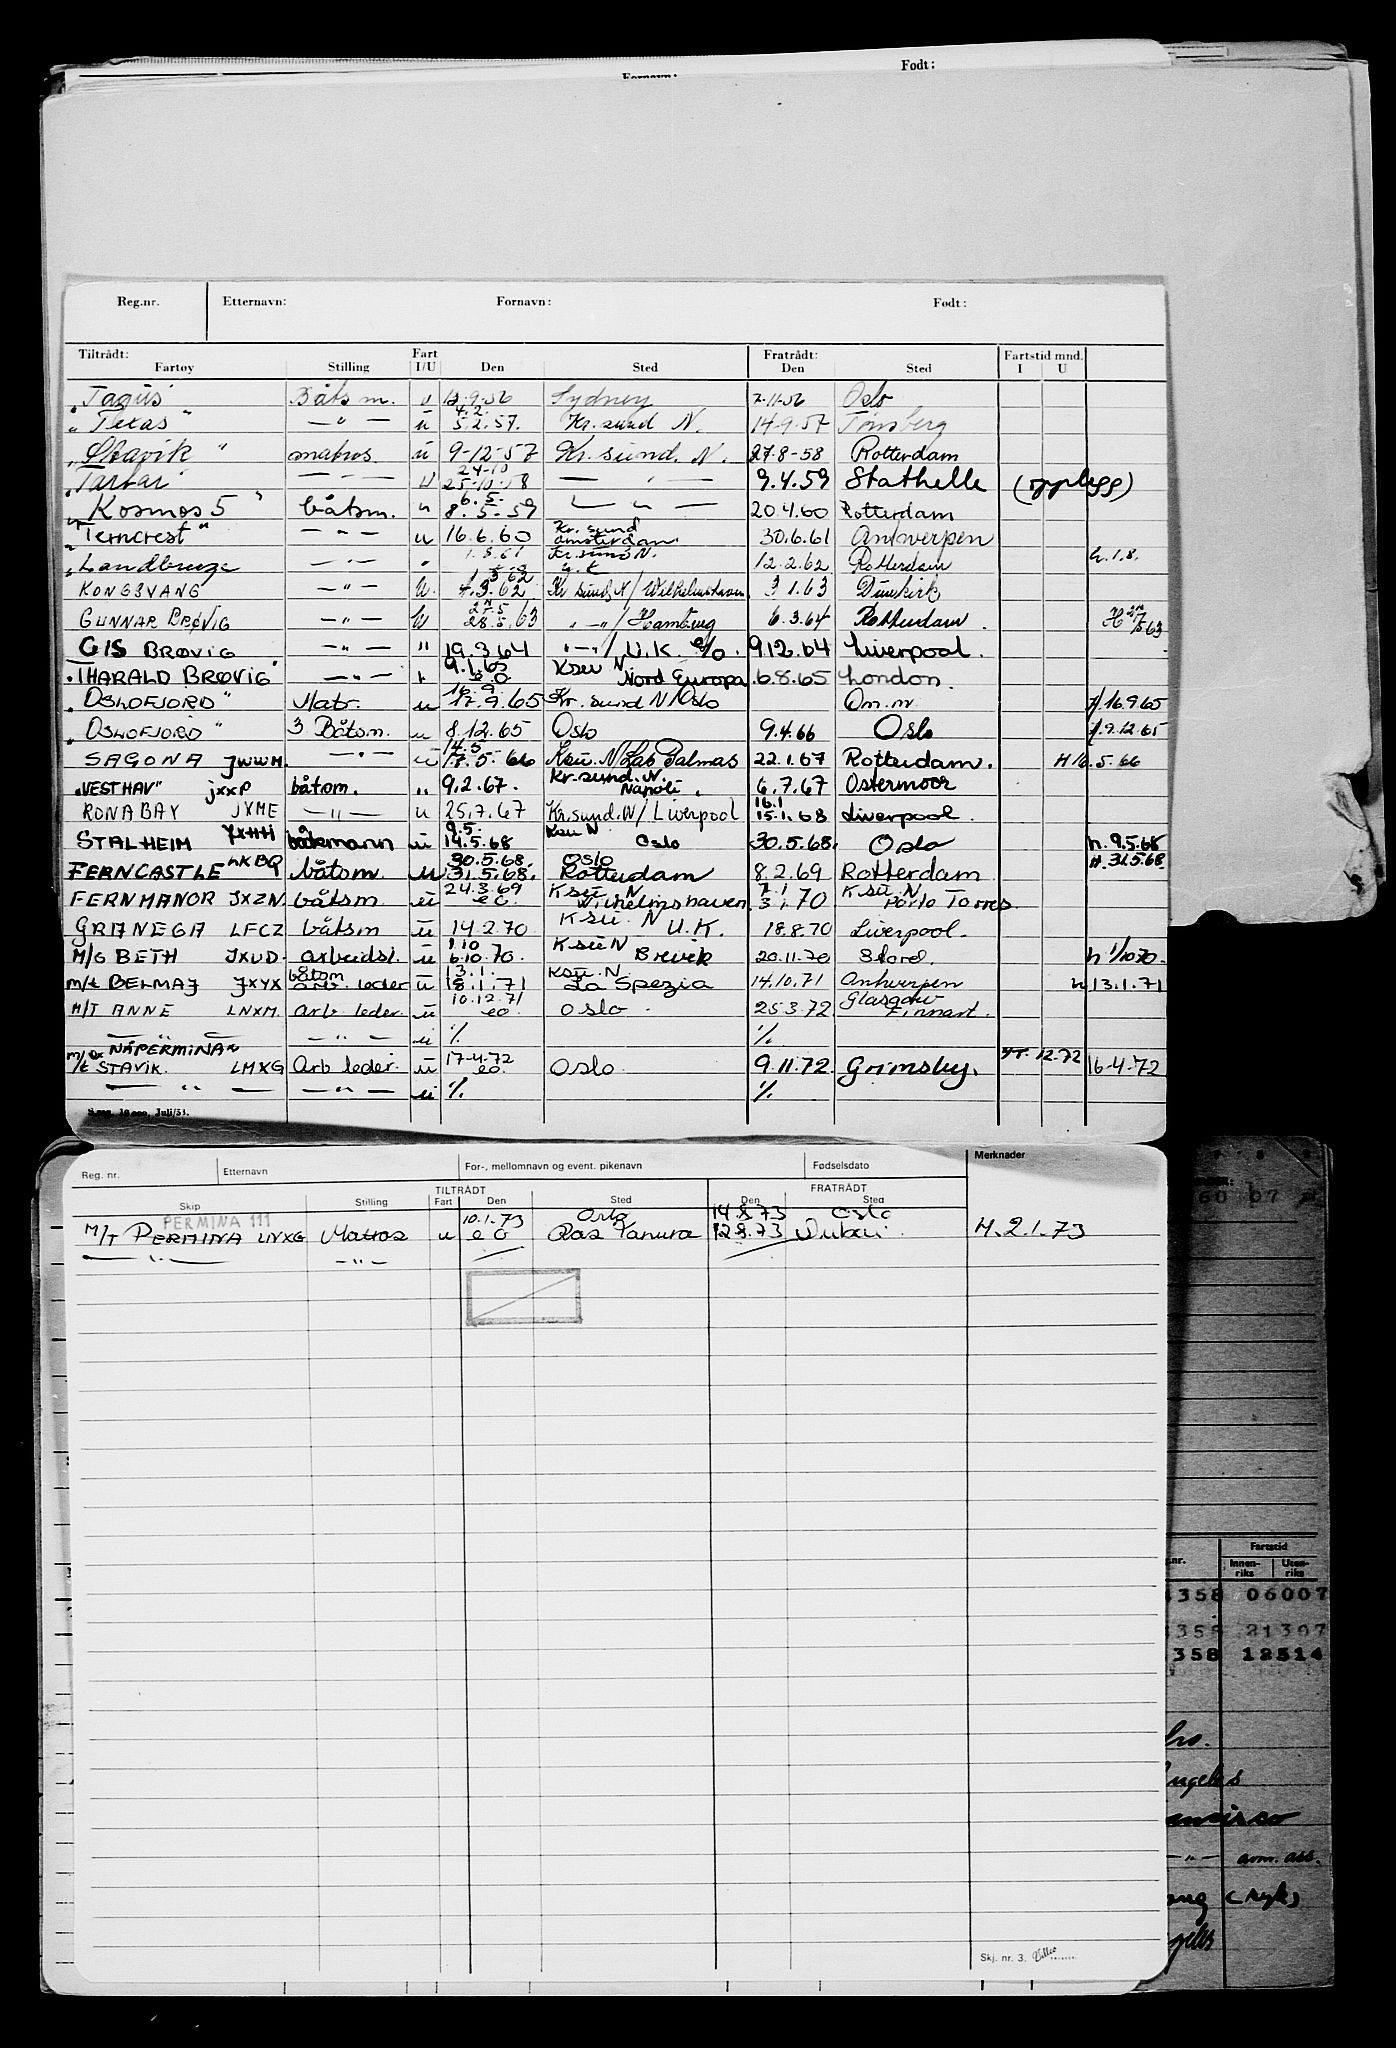 Født:
Fornavn:
Reg.nr. Etternavn: Fornavn: Født:
Tiltrådt: Fart Fratrådt: Fartstid mnd.
Fartøy Stilling I/U Den Sted Den Sted I U
"Tagus" Båtsm. u 13.9.56 Sydney 7-11-56 Oslo
4.2.
"Texas" — " — u 5.2.57. Kr.sund N. 14-9-57 Tønsberg
"Stavik" matros. u 9-12-57 Kr.sund. N. 27-8-58 Rotterdam
24-10
"Tartar" — " — u 25-10-58 — " — 9.4.59 Stathelle (opplegg)
6.5.
"Kosmos 5" båtsm. " 8.5-59 — " — 20.4.60 Rotterdam
Kr.sund
"Terncrest" — " — u 16.6.60 Amsterdam 30.6.61 Antwerpen
Kr.sund N.
"Landbreeze — " — " 12.2.62 Rotterdam h.1.8.
1.3.62
KONGSVANG — " — u. 4.3.62 Kr sund N / Wilhelmshaven 3.1.63 Dunkirk
GUNNAR BRØVIG — " — u 28.5.63 — " — / Hamburg 6.3.64 Rotterdam.
GIS BRØVIG — " — " 19.3.64 — " — / U.K. e/o. 9.12.64 Liverpool.
9.1.65 Ksu N
"HARALD BRØVIG" — " — e.o Nord Europa 6.8.65 London.
16.9.
"OSLOFJORD" Matr. u 17.9.65 Kr.sund N/Oslo Om.m. 16.9.65
"OSLOFJORD" 3 Båtsm. u 8.12.65 Oslo 9.4.66 Oslo 9.12.65
14.5.
SAGONA JWWM. — " — u 17.5.66 Ksu. N/Las Palmas 22.1.67 Rotterdam. H 16.5.66
Kr.sund.N.
"VESTHAV" JXXP båtsm. " 9.2.67. Napoli. 6.7.67 Ostermoor
16.1
RONA BAY JXME — " — u 25.7.67 Kr.sund.N/Liverpool 15.1.68 Liverpool.
9.5. Ksu N
STALHEIM JXHH båtsmann u 14.5.68 Oslo 30.5.68. Oslo h.9.5.68
30.5.68. Oslo H.31.5.68
FERNCASTLE LKBQ båtsm. u 31.5.68. Rotterdam 8.2.69 Rotterdam
24.3.69 Ksu. N 7.1 Ksu. N
FERNMANOR JXZN. båtsm u eo. Wilhelmshaven. 3.1.70 Porto Torres
Ksu. N
GRANEGA LFCZ båtsm u 14.2.70 U.K. 18.8.70 Liverpool.
1.10 Ksu N
M/G BETH JXUD. arbeidsl. u 6.10.70. Brevik 20.11.70 Stord. h 1/10 70.
båtsm 13.1. Ksu. N.
M/t BELMAJ JXYX arb. leder u 18.1.71 La Spezia 14.10.71 Antwerpen h 13.1.71
10.12.71 Glasgow
M/T ANNE LNXM. arb leder. u eo Oslo. 25.3.72 Finnart.
— " — — " — u %. %.
NÅ PERMINA
17.4.72 12.72
M/t STAVIK. LMXG Arb leder. u eo. Oslo. 9.11.72 Grimsby. 16.4.72
— " — — " — u %. %.
S.reg. 10 000, Juli/53.
Merknader
Reg. nr. Etternavn For-, mellomnavn og event. pikenavn Fødselsdato
TILTRÅDT FRATRÅDT
Skip Stilling Fart Den Sted Den Sted
PERMINA 111 10.1.73 Oslo 14.8.73 Oslo
M/T PERMINA LNXG Matros u eo Ras Tanura 12.8.73 Dubai. H.2.1.73
— " — — " —
60 07
Fartstid
nr. Innen-riks Uten-riks
358 06007
355 21307
358 12514
Skj. nr. 3.